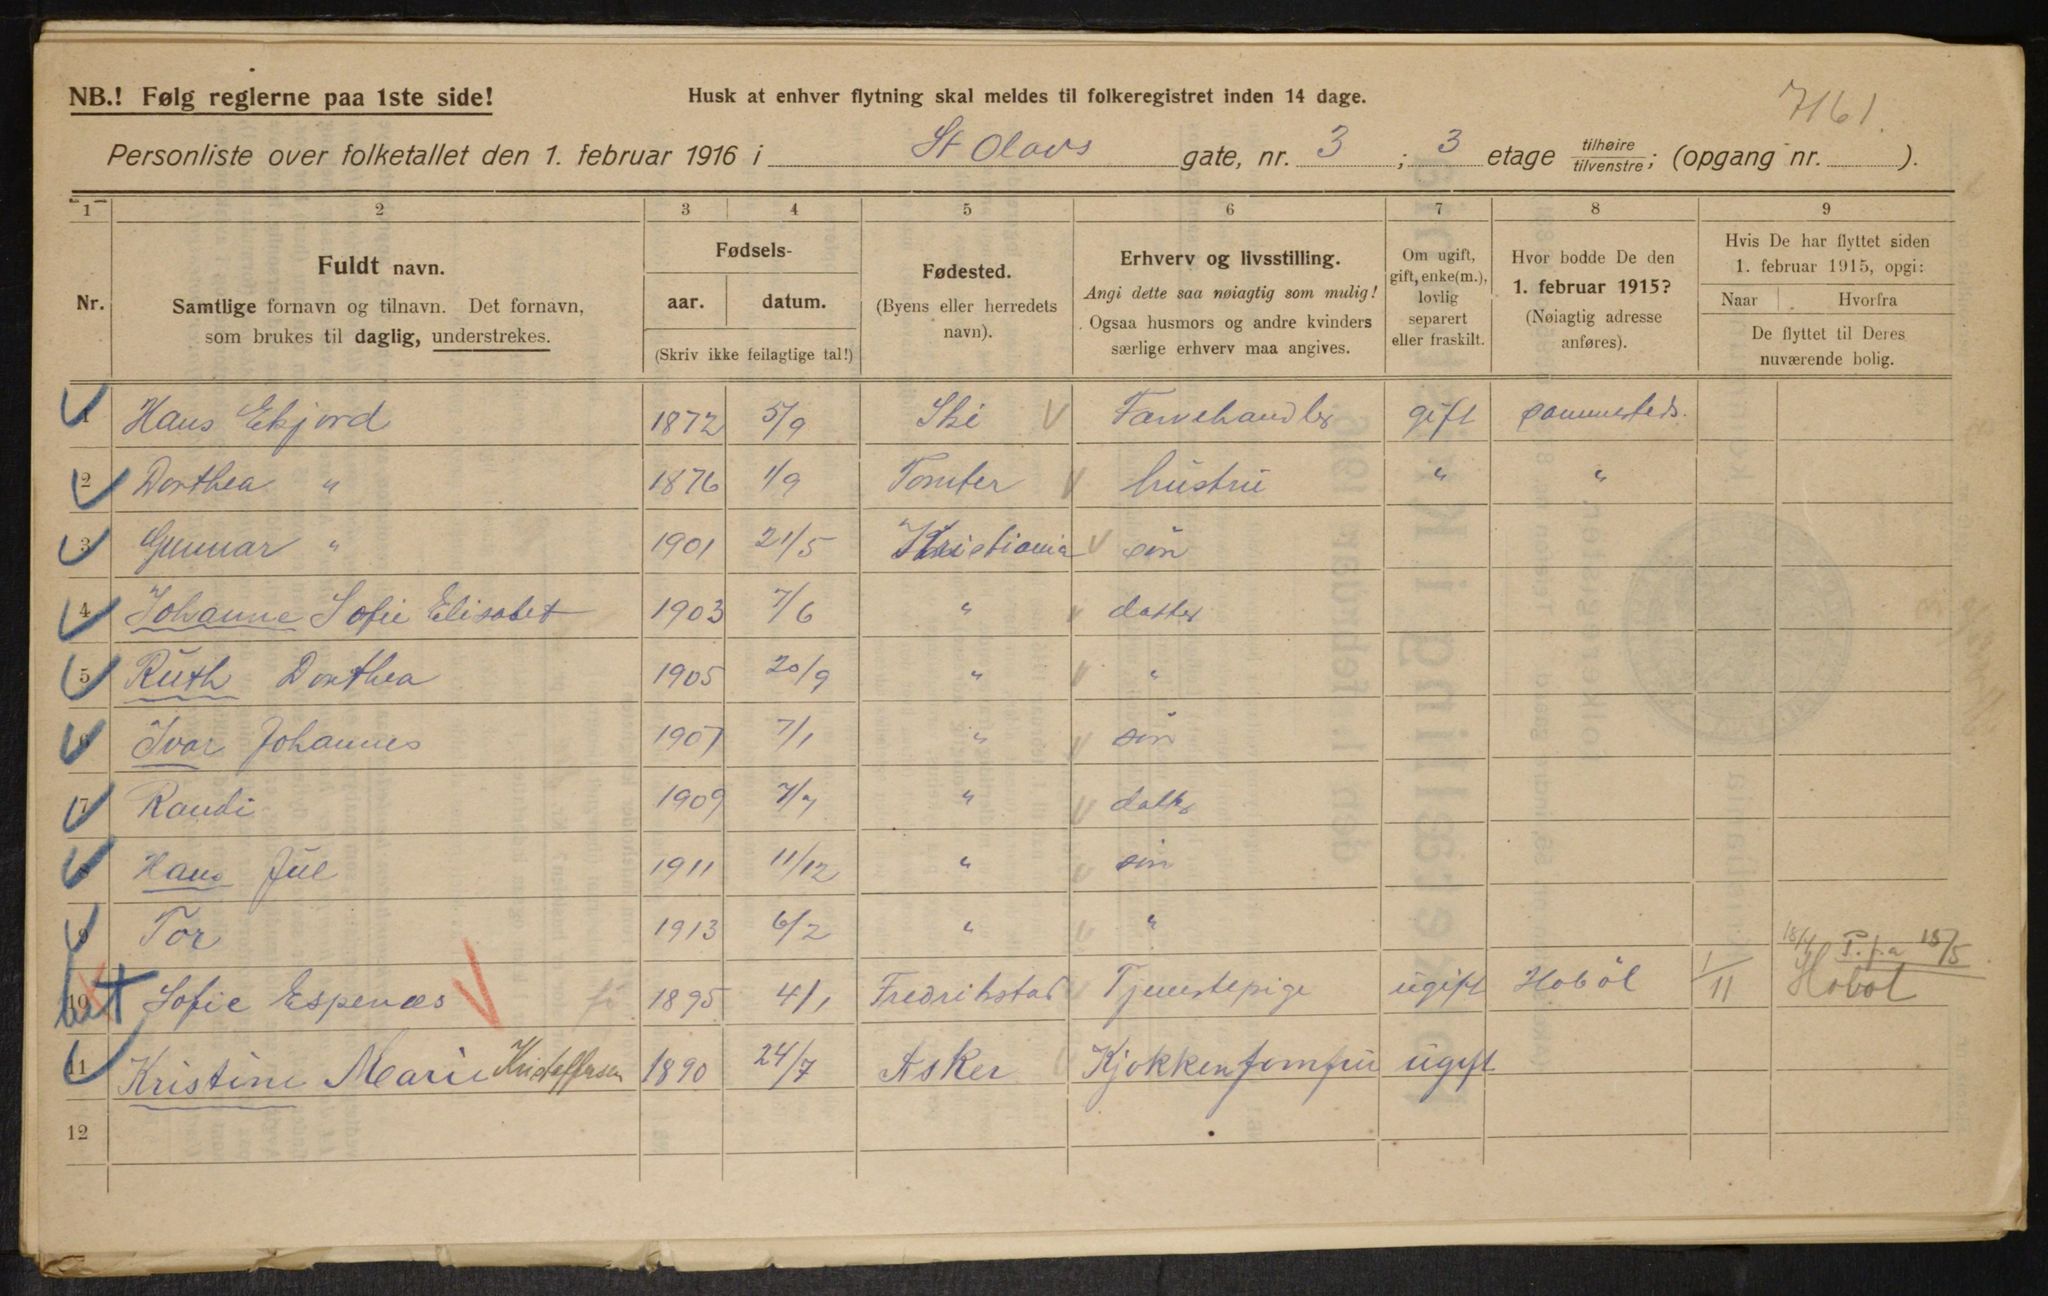 7161.
NB.! Følg reglerne paa 1ste side!
Husk at enhver flytning skal meldes til folkeregistret inden 14 dage.
Personliste over folketallet den 1. februar 1916 i St Olavs gate, nr. 3 ; 3 etage tilhøire/tilvenstre; (opgang nr. ).
1 2 3 4 5 6 7 8 9
Nr.
Fuldt navn.
Samtlige fornavn og tilnavn. Det fornavn,
som brukes til daglig, understrekes.
Fødsels-
aar. datum.
(Skriv ikke feilagtige tal!)
Fødested.
(Byens eller herredets
navn).
Erhverv og livsstilling.
Angi dette saa nøiagtig som mulig!
Ogsaa husmors og andre kvinders
særlige erhverv maa angives.
Om ugift,
gift, enke(m.),
lovlig
separert
eller fraskilt.
Hvor bodde De den
1. februar 1915?
(Nøiagtig adresse
anføres).
Hvis De har flyttet siden
1. februar 1915, opgi:
Naar Hvorfra
De flyttet til Deres
nuværende bolig.
1 Hans Ekjord 1872 5/9 Ski Farvehandler gift sammesteds.
2 Dorthea " 1876 1/9 Tomter hustru " "
3 Gunnar " 1901 21/5 Kristiania søn
4 Johanne Sofie Elisabet 1903 7/6 " datter
5 Ruth Dorthea 1905 20/9 " "
6 Ivar Johannes 1907 7/1 " søn
7 Randi 1909 7/7 " datter
8 Hans Jul 1911 11/12 " søn
9 Tor 1913 6/2 " "
18/4 P.f.a 15/5
10 Sofie Espenæs 1895 4/1 Fredrikstad Tjenestepige ugift Hobøl 1/11 Hobøl
11 Kristine Marie Kristoffersen 1890 24/7 Asker Kjøkkenjomfru ugift
12